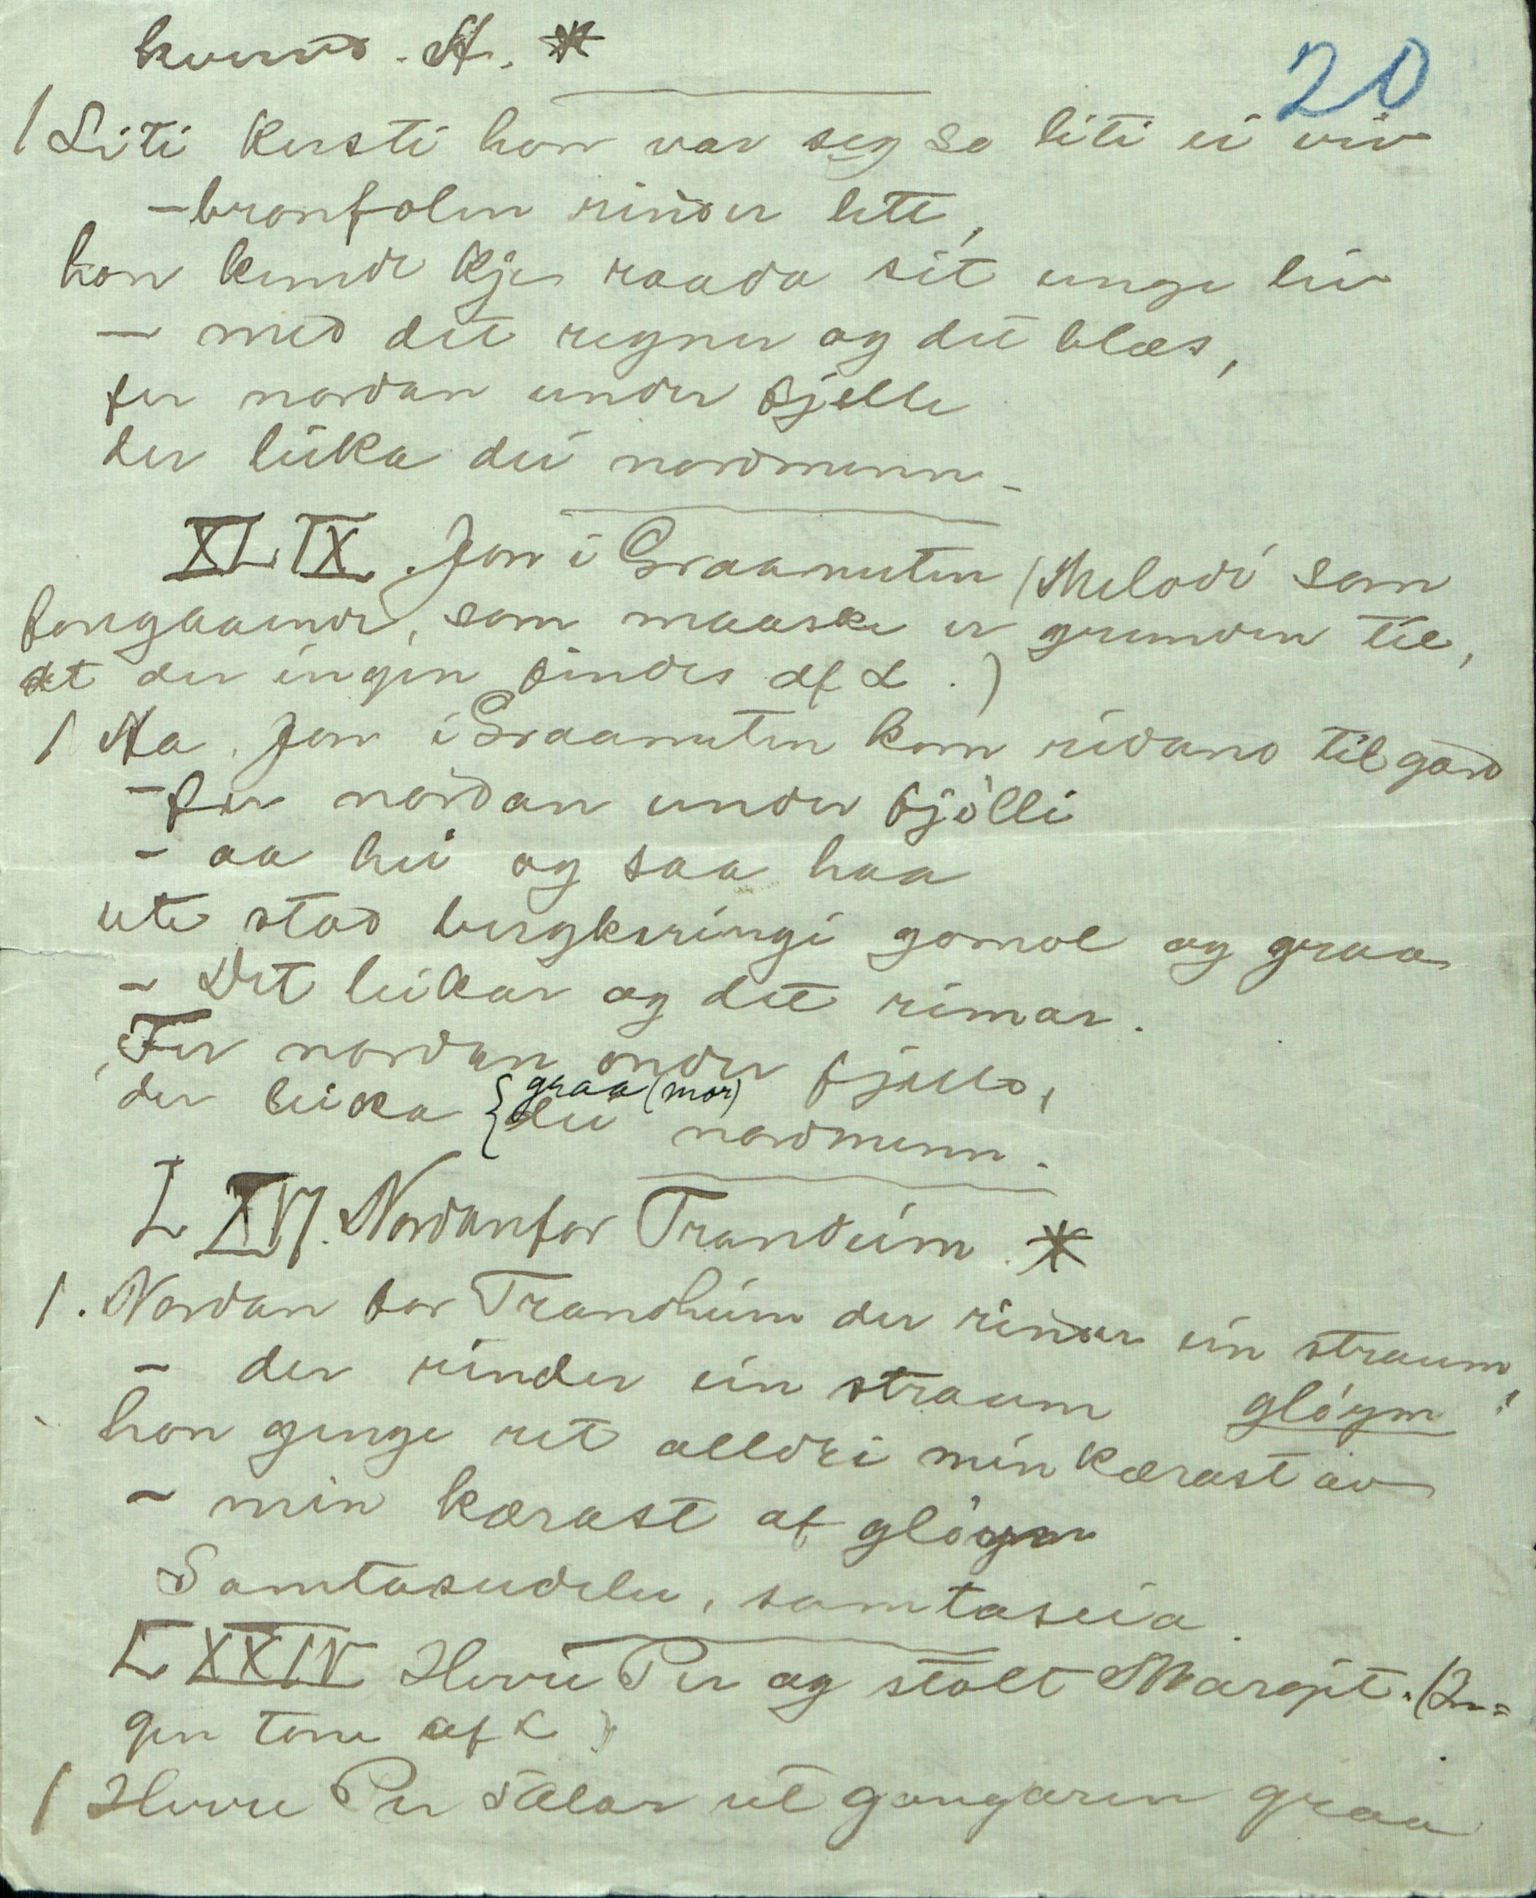 20
kvend. A. *
1 Liti Kersti hon var seg so liti ei viv
- bronfolen rinder lett,
hon kunde kje raada sit unge liv
- med det regner og det blæs,
fer nordan under fjelle
der leika dei nordmenn -
XLIX. Jon i Graanutin (Melodi som
foregaaende, som maaske er grunden til,
at der ingen findes af L.)
1 Aa Jon i Graanutin kom ridand til gard
- fer nordan under fjölli
- aa hei og saa haa
ute stod bergkvringi gomol og graa
- Det leikar og det rimar.
Fer nordan onder fjelle,
der leika {dei graa (mor) nordmenn.
LXVI. Nordanfor Trondeim *
1. Nordan for Trondheim der rinder ein straum,
- der rinder ein straum gløym!
hon genge ret alldri min kærast av
- min kærast af gløym
Samtasudelei, samtaseia.
LXXIV Herre Per og stolt Margjit. (In=
gen tone af L)
1 Herre Per sålar ut gangaren graa